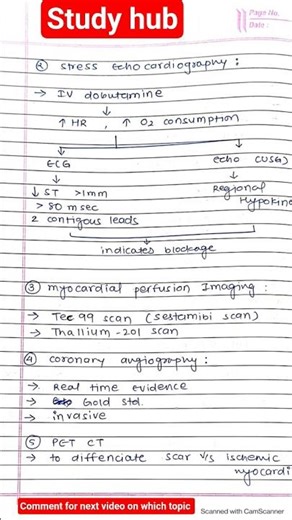 Study hub
Page No.
Date :
② stress echocardiography :
→ IV dobutamine
↓
↑ HR , ↑ O2 consumption
↓ ↓
ECG echo (USG)
↓ ↓
↓ ST >1mm Regional
> 80 msec Hypokine
2 contigous leads
indicates blockage
③ myocardial perfusion Imaging :
→ Tec 99 scan (sestamibi scan)
→ Thallium-201 scan
④ coronary angiography :
→ Real time evidence
→ Gold std.
→ invasive
⑤ PET CT
→ to diffenciate scar v/s ischemic
myocardi
Comment for next video on which topic
Scanned with CamScanner